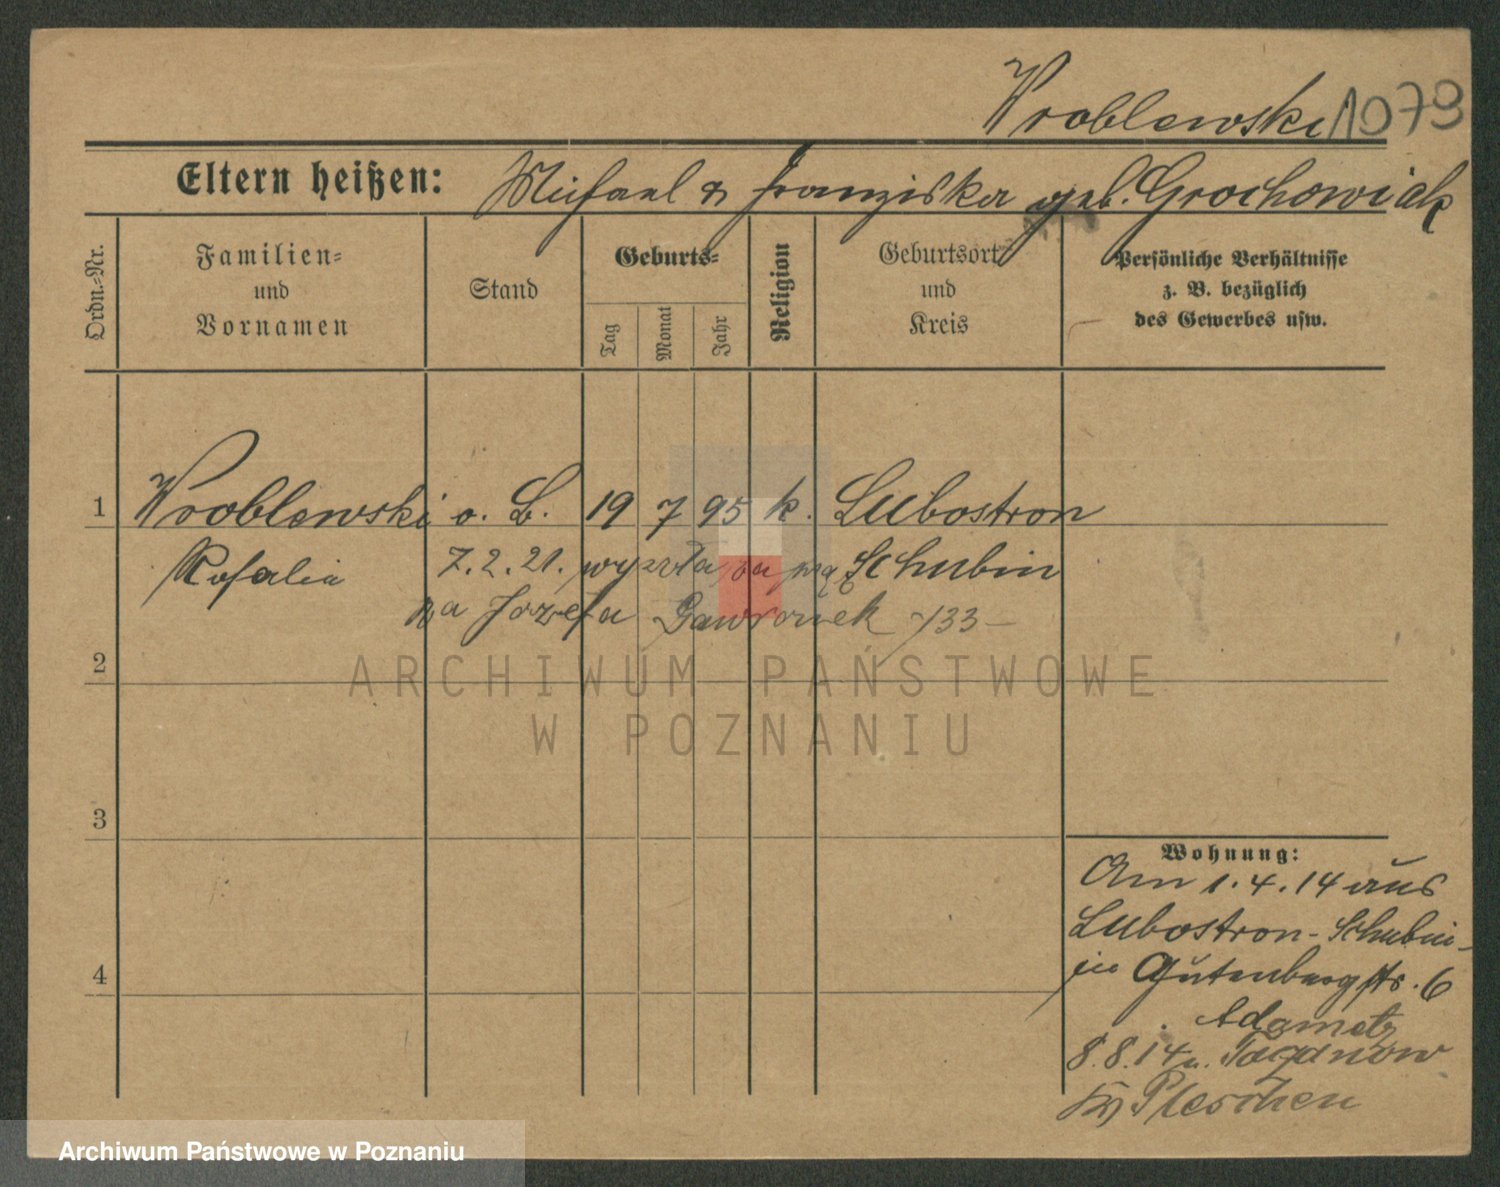 Wroblewski 1079
Eltern heißen: Michael & Franziska geb. Grochowiak
Ordn.-Nr.
Familien-
und
Vornamen
Stand
Geburts-
Tag
Monat
Jahr
Religion
Geburtsort
und
Kreis
Persönliche Verhältnisse
z. B. bezüglich
des Gewerbes usw.
1 Wroblewski o. B. 19 7 95 k. Lubostron
Rosalie 7.2.21. wyszła za mą Schubin
za Józefa Gawronek 733-
2
3
4
Wohnung:
Am 1.4.14 aus
Lubostron-Schubin
in Gutenbergstr. 6
Adametz
8.8.14 n.
Kr Pleschen
ARCHIWUM PAŃSTWOWE
W POZNANIU
Archiwum Państwowe w Poznaniu